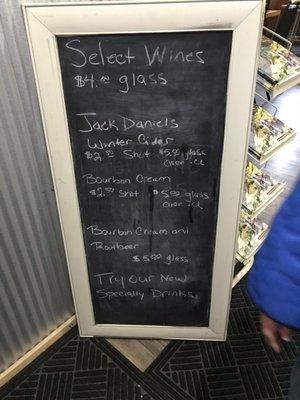 Select Wines
$4.00 glass
Jack Daniels
Winter Cider
$2.50 Shot $5.00 glass
over ice
Bourbon Cream
$2.50 Shot $5.00 glass
over ice
Bourbon Cream and
Rootbeer
$5.00 glass
Try Our New
Specialty Drinks